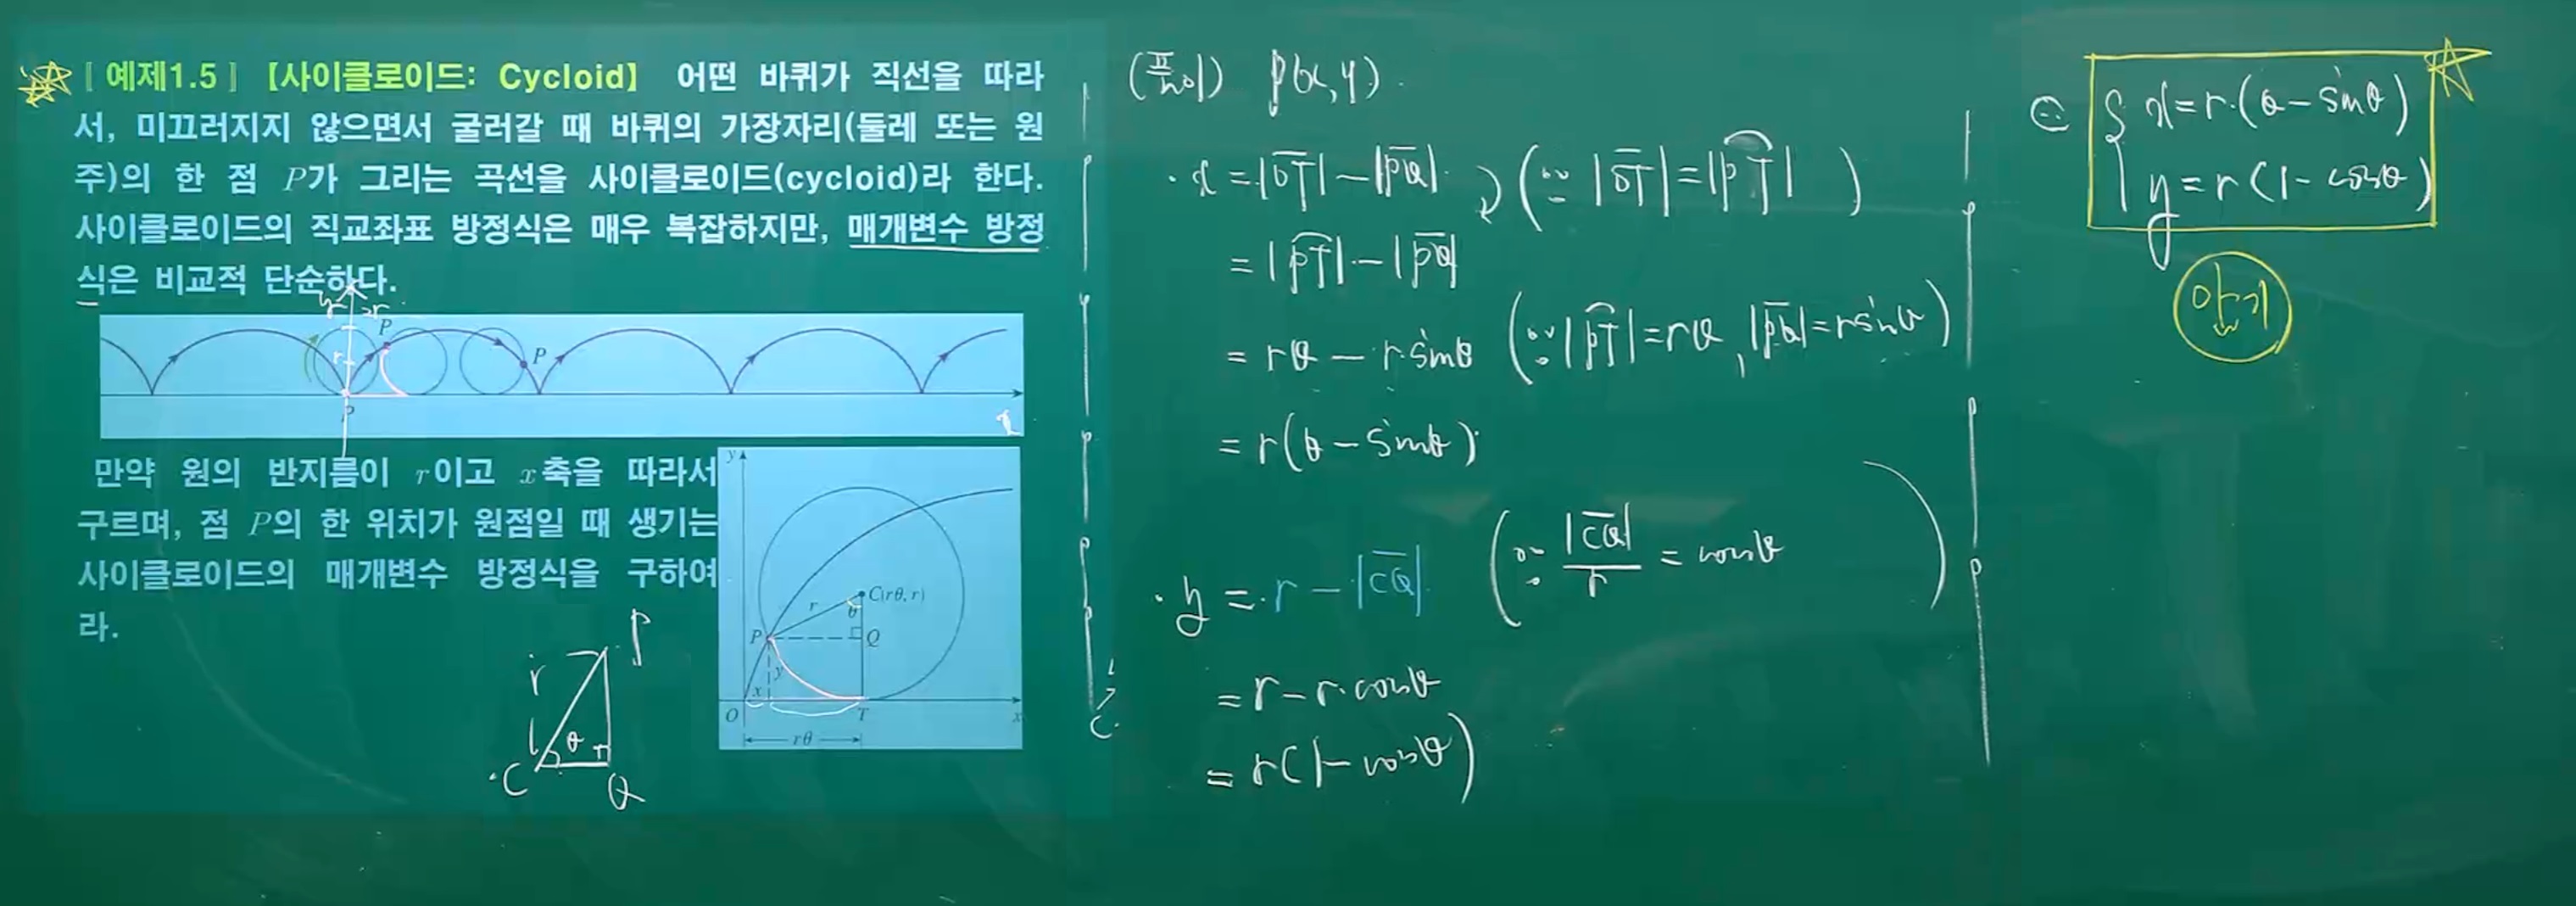 [예제1.5] 【사이클로이드: Cycloid】 어떤 바퀴가 직선을 따라
서, 미끄러지지 않으면서 굴러갈 때 바퀴의 가장자리(둘레 또는 원
주)의 한 점 P가 그리는 곡선을 사이클로이드(cycloid)라 한다.
사이클로이드의 직교좌표 방정식은 매우 복잡하지만, 매개변수 방정
식은 비교적 단순하다.
y 2r
P
r
P
P
x
만약 원의 반지름이 r이고 x축을 따라서
구르며, 점 P의 한 위치가 원점일 때 생기는
사이클로이드의 매개변수 방정식을 구하여
라.
y
C(rθ, r)
r
θ
P
Q
y
x
O
T
x
rθ
P
r
θ
C
Q
(풀이) P(x, y).
· x = |OT| − |PQ| (∵ |OT| = |PT|)
= |PT| − |PQ|
= rθ − r·sinθ (∵ |PT| = rθ, |PQ| = r sinθ)
= r(θ − sinθ)
· y = r − |CQ| (∵ |CQ|/r = cosθ)
= r − r·cosθ
= r(1 − cosθ)
{ x = r·(θ − sinθ)
y = r(1 − cosθ)
암기